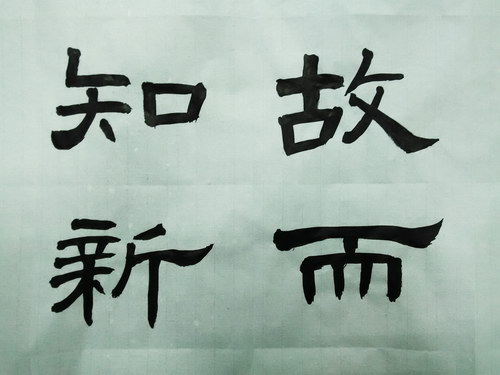 故而
知新